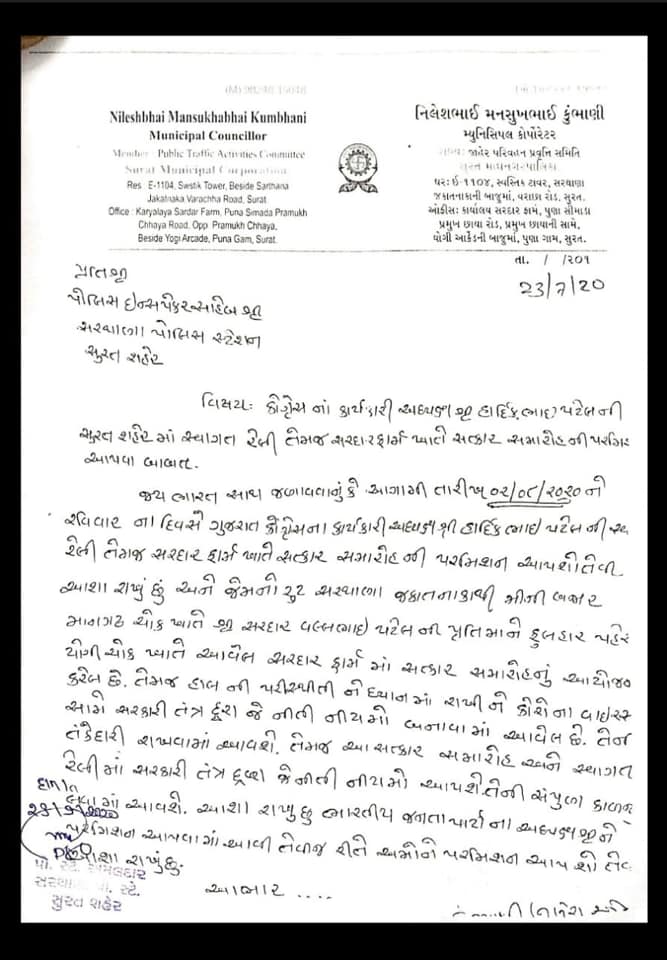 Nileshbhai Mansukhabhai Kumbhani
Municipal Councillor
Member : Public Traffic Activities Committee
Surat Municipal Corporation
Res : E-1104, Swstik Tower, Beside Sarthana
Jakatnaka Varachha Road, Surat
Office : Karyalaya Sardar Farm, Puna Simada Pramukh
Chhaya Road. Opp. Pramukh Chhaya,
Beside Yogi Arcade, Puna Gam, Surat.
નિલેશભાઈ મનસુખભાઈ કુંભાણી
મ્યુનિસિપલ કોર્પોરેટર
સભ્ય: જાહેર પરિવહન પ્રવૃત્તિ સમિતિ
સુરત મહાનગરપાલિકા
ઘર: ઈ-૧૧૦૪, સ્વસ્તિક ટાવર, સરથાણા
જકાતનાકાની બાજુમાં, વરાછા રોડ, સુરત.
ઓફીસ: કાર્યાલય સરદાર ફાર્મ, પુણા સીમાડા
પ્રમુખ છાયા રોડ, પ્રમુખ છાયાની સામે,
યોગી આર્કેડની બાજુમાં, પુણા ગામ, સુરત.
તા. / /૨૦૧
23/7/20
પ્રતિશ્રી
પોલિસ ઇન્સપેકટર સાહેબ શ્રી
સરથાણા પોલિસ સ્ટેશન
સુરત શહેર
વિષય: કોંગ્રેસ નાં કાર્યકારી અધ્યક્ષ શ્રી હાર્દિકભાઇ પટેલ ની
સુરત શહેર માં સ્વાગત રેલી તેમજ સરદાર ફાર્મ ખાતે સત્કાર સમારોહ ની
આપવા બાબત.
જય ભારત સાથ જણાવવાનું કે આગામી તારીખ ૦૨/૦૮/૨૦૨૦ ને
રવિવાર ના દિવસે ગુજરાત કોંગ્રેસના કાર્યકારી અધ્યક્ષ શ્રી હાર્દિકભાઇ પટેલ ની
રેલી તેમજ સરદાર ફાર્મ ખાતે સત્કાર સમારોહ ની પરમિશન આપશો તેવી
આશા રાખું છું અને જેમનો રુટ સરથાણા જકાતનાકાથી મીની બજાર
માનગઢ ચોક ખાતે શ્રી સરદાર વલ્લભભાઇ પટેલ ની પ્રતિમાને ફુલહાર પહેર
યોગી ચોક ખાતે આવેલ સરદાર ફાર્મ માં સત્કાર સમારોહનું આયોજન
કરેલ છે. તેમજ હાલ ની પરીસ્થીતી ને ધ્યાન માં રાખી ને કોરોના વાઇરસ
સામે સરકારી તંત્ર દ્વારા જે નીતી નીયમો બનાવા માં આવેલ છે. તેન
તકેદારી રાખવામાં આવશે. તેમજ આ સત્કાર સમારોહ અને સ્વાગત
રેલી માં સરકારી તંત્ર દ્વારા જે નીતી નીયમો આપશે. તેની સંપુણ કાળજી
લેવા માં આવશે. આશા રાખુ છુ ભારતીય જનતા પાર્ટી ના અધ્યક્ષ શ્રી ને
પરમિશન આપવા માં આવી તેવીજ રીતે અમોને પરમિશન આપ શો તેવ
આશા રાખું છું.
આભાર ....
પો. સ્ટે. અમલદાર
સરથાણા પો. સ્ટે.
સુરત શહેર